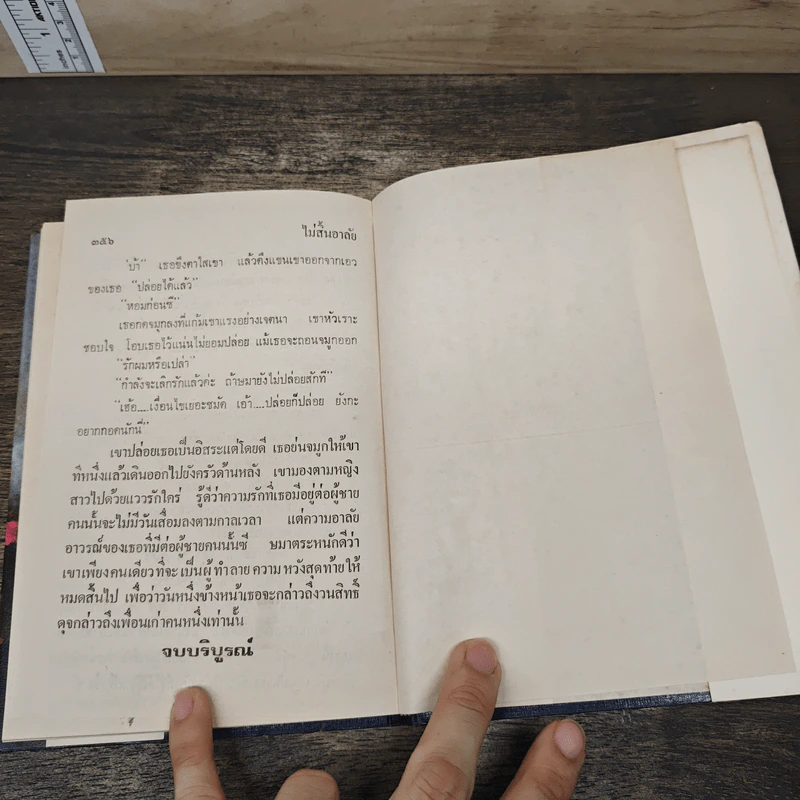 ๓๕๖ ไม่สิ้นอาลัย
"บ้า" เธอขึงตาใส่เขา แล้วดึงแขนเขาออกจากเอว
ของเธอ "ปล่อยได้แล้ว"
"หอมก่อนซี"
เธอกดจมูกลงที่แก้มเขาแรงอย่างเจตนา เขาหัวเราะ
ชอบใจ โอบเธอไว้แน่นไม่ยอมปล่อย แม้เธอจะถอนจมูกออก
"รักผมหรือเปล่า"
"กำลังจะเลิกรักแล้วค่ะ ถ้าษมายังไม่ปล่อยสักที"
"เฮ้อ....เงื่อนไขเยอะชมัด เอ้า....ปล่อยก็ปล่อย ยังกะ
อยากกอดนักนี่"
เขาปล่อยเธอเป็นอิสระแต่โดยดี เธอย่นจมูกให้เขา
ทีหนึ่งแล้วเดินออกไปยังครัวด้านหลัง เขามองตามหญิง
สาวไปด้วยแววรักใคร่ รู้ดีว่าความรักที่เธอมีอยู่ต่อผู้ชาย
คนนั้นจะไม่มีวันเสื่อมลงตามกาลเวลา แต่ความอาลัย
อาวรณ์ของเธอที่มีต่อผู้ชายคนนั้นซี ษมาตระหนักดีว่า
เขาเพียงคนเดียวที่จะเป็นผู้ทำลายความหวังสุดท้ายให้
หมดสิ้นไป เพื่อว่าวันหนึ่งข้างหน้าเธอจะกล่าวถึงวนสิทธิ์
ดุจกล่าวถึงเพื่อนเก่าคนหนึ่งเท่านั้น
จบบริบูรณ์